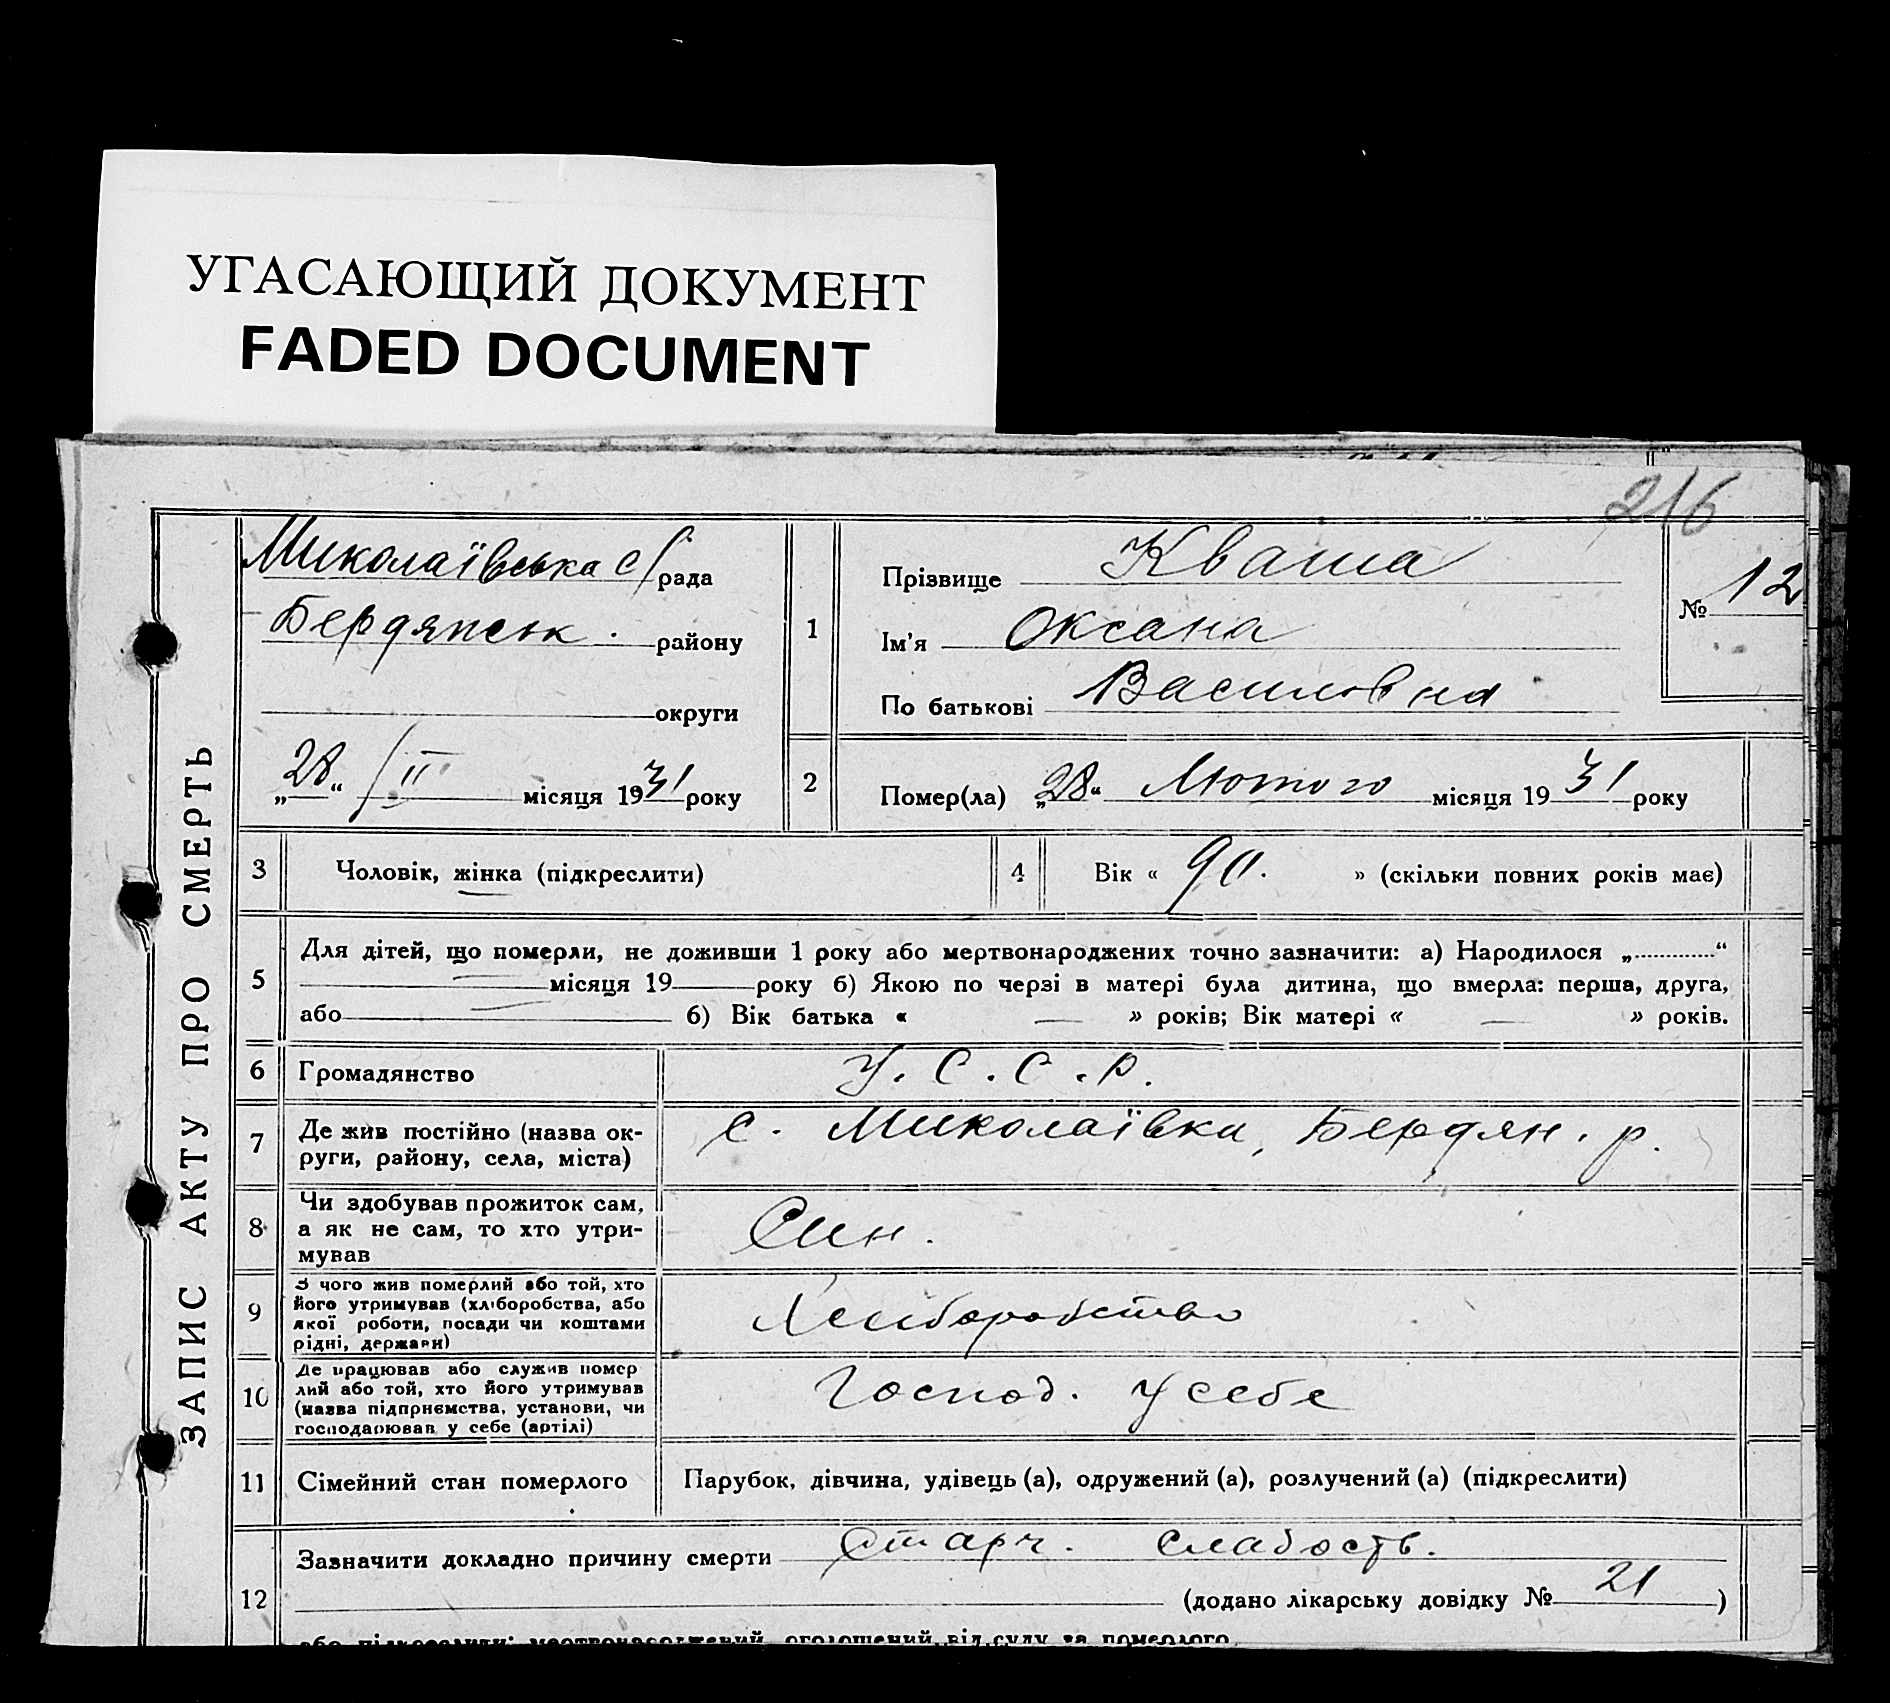 УГАСАЮЩИЙ ДОКУМЕНТ
FADED DOCUMENT
216
ЗАПИС АКТУ ПРО СМЕРТЬ
Миколаївська с/рада
Бердянськ. району
округи
„28“ /II місяця 1931 року
1
Прізвище Кваша
Ім'я Оксана
По батькові Василовна
№ 12
2
Помер(ла) „28“ Лютого місяця 1931 року
3 Чоловік, жінка (підкреслити)
4 Вік « 90. » (скільки повних років має)
5 Для дітей, що померли, не доживши 1 року або мертвонароджених точно зазначити: а) Народилося „............“
місяця 19 року б) Якою по черзі в матері була дитина, що вмерла: перша, друга,
або б) Вік батька « — » років; Вік матері « — » років.
6 Громадянство У.С.С.Р.
7 Де жив постійно (назва ок-
руги, району, села, міста)
с. Миколаївка, Бердян. р.
8 Чи здобував прожиток сам,
а як не сам, то хто утри-
мував
Син.
9 З чого жив померлий або той, хто
його утримував (хліборобства, або
якої роботи, посади чи коштами
рідні, держави)
Хліборобство
10 Де працював або служив помер
лий або той, хто його утримував
(назва підприємства, установи, чи
господарював у себе (артілі)
Господ. у себе
11 Сімейний стан померлого Парубок, дівчина, удівець (а), одружений (а), розлучений (а) (підкреслити)
12 Зазначити докладно причину смерти Старч. слабость.
(додано лікарську довідку № 21 )
або підкреслити: мертвонароджений, оголошений від суду за померлого.